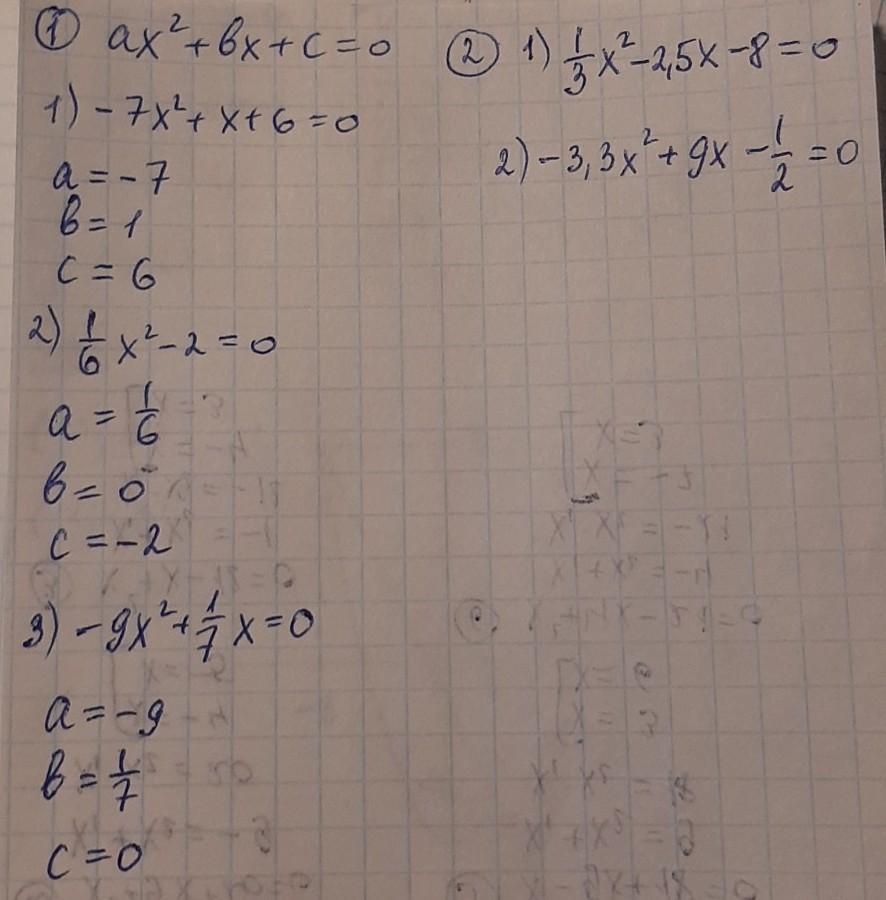 ① ax²+bx+c=0
1) -7x²+x+6=0
a=-7
b=1
c=6
2) 1/6 x²-2=0
a=1/6
b=0
c=-2
3) -9x²+1/7 x=0
a=-9
b=1/7
c=0
② 1) 1/3 x²-2,5x-8=0
2) -3,3x²+9x-1/2=0